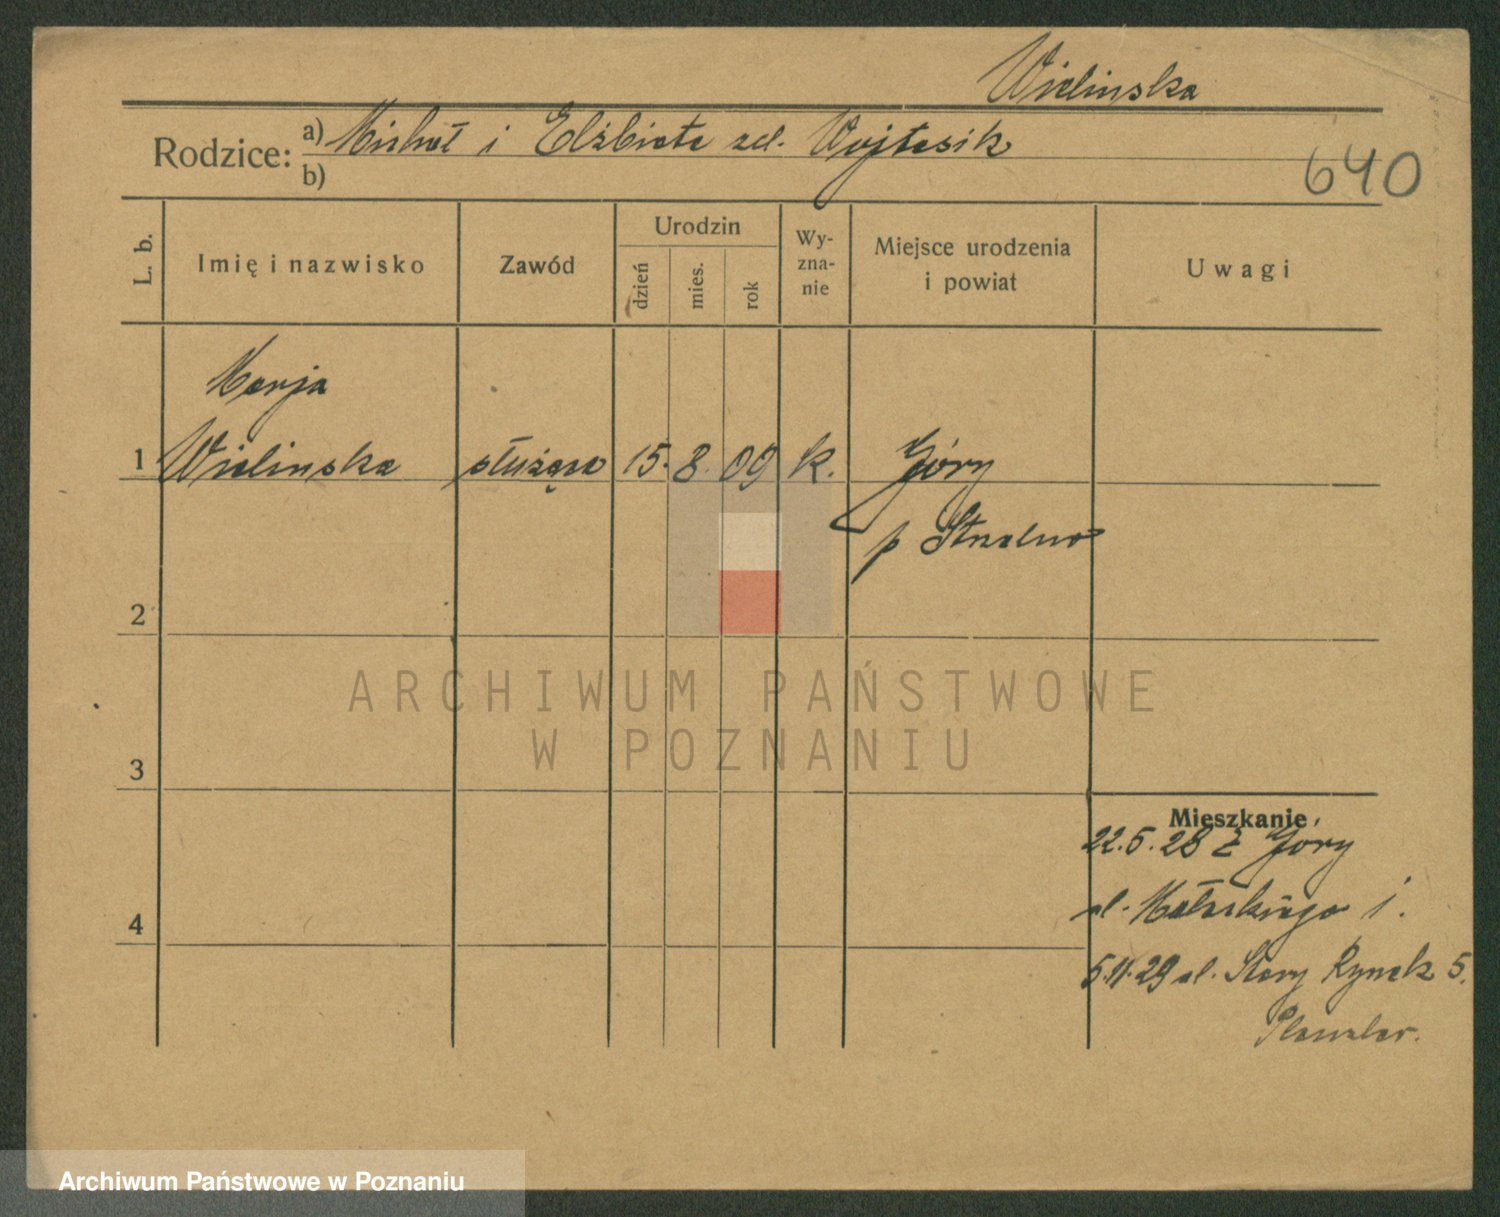 Wielinska
Rodzice: a) Michał i Elżbieta zd. Wojtasik
b)
640
L. b.
Imię i nazwisko
Zawód
Urodzin
dzień
mies.
rok
Wy-
zna-
nie
Miejsce urodzenia
i powiat
Uwagi
Marja
1 Wielinska służąca 15. 8. 09 k. Góry
p Strzelno
2
ARCHIWUM PAŃSTWOWE
W POZNANIU
3
Mieszkanie
22.5.28 z Góry
ul.
4
5.11.29 ul. Stary Rynek 5.
Archiwum Państwowe w Poznaniu